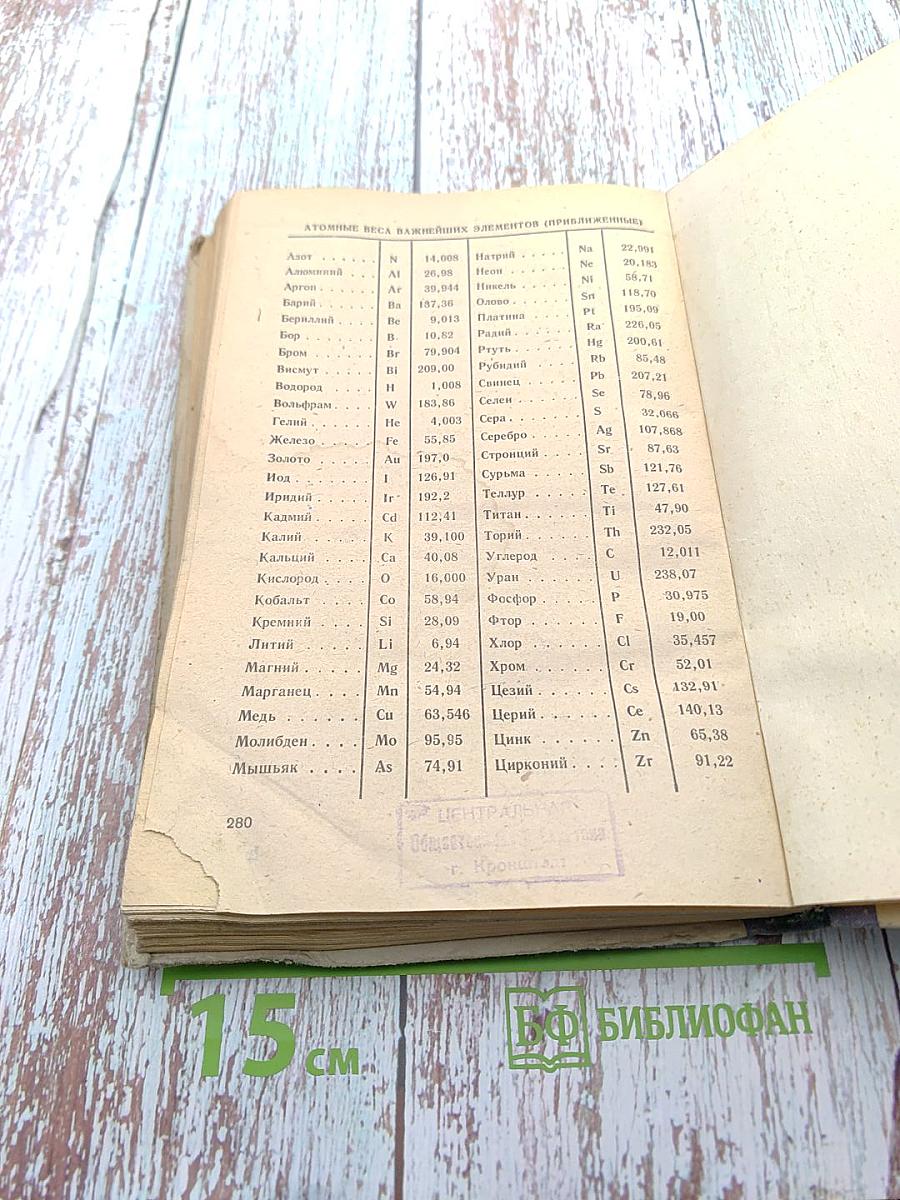 АТОМНЫЕ ВЕСА ВАЖНЕЙШИХ ЭЛЕМЕНТОВ (ПРИБЛИЖЕННЫЕ)
Азот . . . . . . N 14,008
Алюминий . . . Al 26,98
Аргон . . . . . Ar 39,944
Барий . . . . . Ba 137,36
Бериллий . . . . Be 9,013
Бор . . . . . . B 10,82
Бром . . . . . Br 79,904
Висмут . . . . . Bi 209,00
Водород . . . . H 1,008
Вольфрам . . . . W 183,86
Гелий . . . . . He 4,003
Железо . . . . Fe 55,85
Золото . . . . . Au 197,0
Иод . . . . . . I 126,91
Иридий . . . . Ir 192,2
Кадмий . . . . . Cd 112,41
Калий . . . . . K 39,100
Кальций . . . . Ca 40,08
Кислород . . . . O 16,000
Кобальт . . . . Co 58,94
Кремний . . . . Si 28,09
Литий . . . . . Li 6,94
Магний . . . . . Mg 24,32
Марганец . . . . Mn 54,94
Медь . . . . . . Cu 63,546
Молибден . . . . Mo 95,95
Мышьяк . . . . As 74,91
Натрий . . . . . Na 22,991
Неон . . . . . Ne 20,183
Никель . . . . . Ni 58,71
Олово . . . . . Sn 118,70
Платина . . . . Pt 195,09
Радий . . . . . Ra 226,05
Ртуть . . . . . Hg 200,61
Рубидий . . . . Rb 85,48
Свинец . . . . . Pb 207,21
Селен . . . . . Se 78,96
Сера . . . . . . S 32,066
Серебро . . . . Ag 107,868
Стронций . . . . Sr 87,63
Сурьма . . . . Sb 121,76
Теллур . . . . Te 127,61
Титан . . . . . Ti 47,90
Торий . . . . . Th 232,05
Углерод . . . . C 12,011
Уран . . . . . U 238,07
Фосфор . . . . P 30,975
Фтор . . . . . F 19,00
Хлор . . . . . Cl 35,457
Хром . . . . . Cr 52,01
Цезий . . . . . Cs 132,91
Церий . . . . . Ce 140,13
Цинк . . . . . Zn 65,38
Цирконий . . . . Zr 91,22
280
ЦЕНТРАЛЬНАЯ
г. Кронштадт
15 см
БФ БИБЛИОФАН